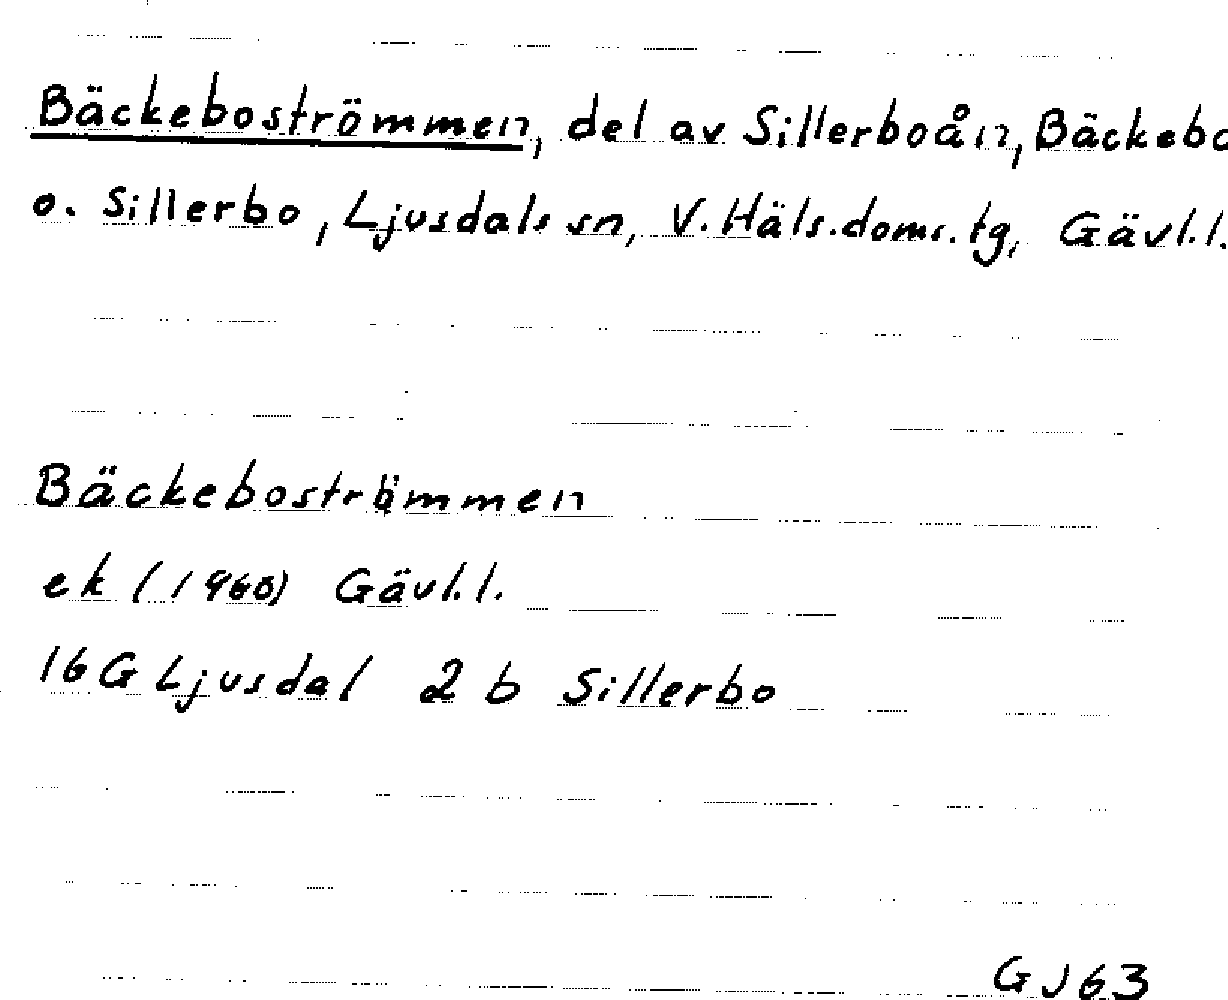 Bäckeboströmmen, del av Sillerboån, Bäckebo
o. Sillerbo, Ljusdals sn, V. Häls. doms. tg, Gävl.l.
Bäckeboströmmen
ek (1960) Gävl.l.
16G Ljusdal 2 b Sillerbo
GJ63